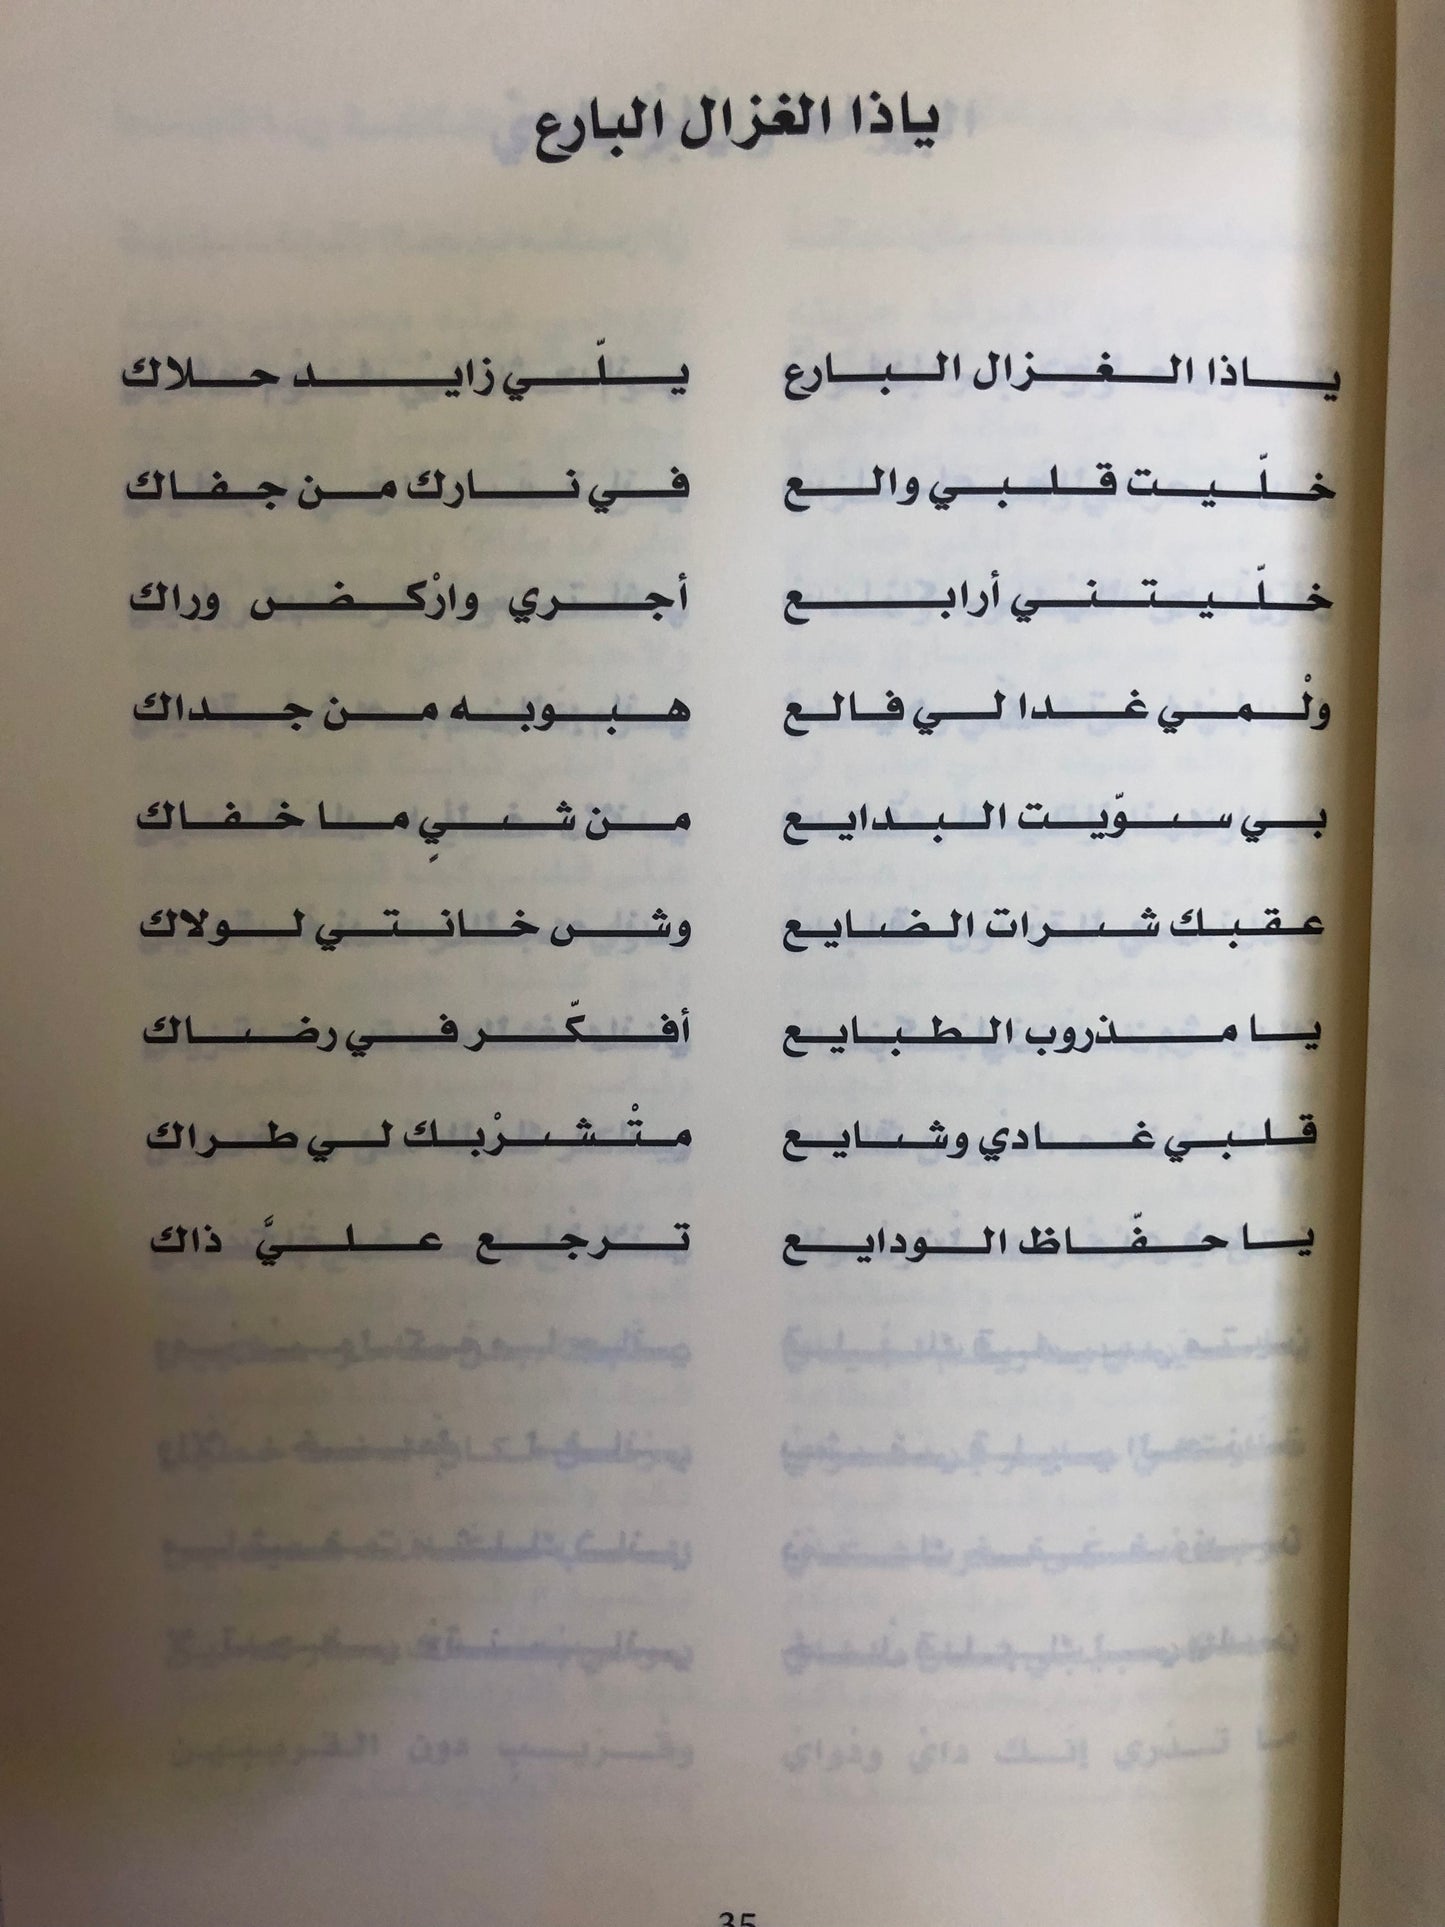 ياذا الغزال البارع
ياذا الغزال البارع يلّي زايد حلاك
خلّيت قلبي والع في نارك من جفاك
خلّيتني أرابع أجري وارْكض وراك
ولْمي غدا لي فالع هبوبه من جداك
بي سوّيت البدايع من شيٍ ما خفاك
عقبك شرات الضايع وش خانتي لولاك
يا مذروب الطبايع أفكّر في رضاك
قلبي غادي وشايع متْشرْبك لي طراك
يا حفّاظ الودايع ترجع عليَّ ذاك
35